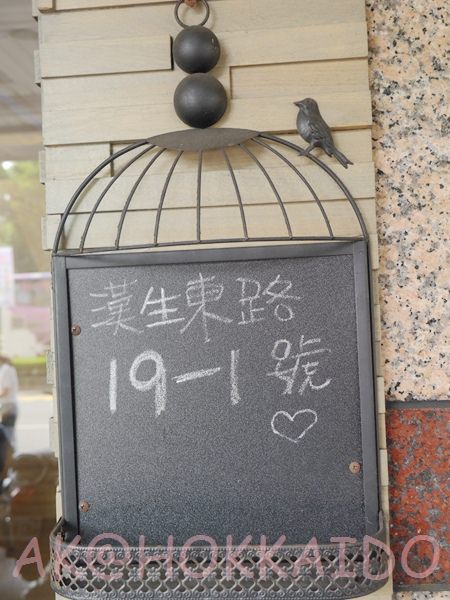 漢生東路
19-1號
AKOHOKKAIDO